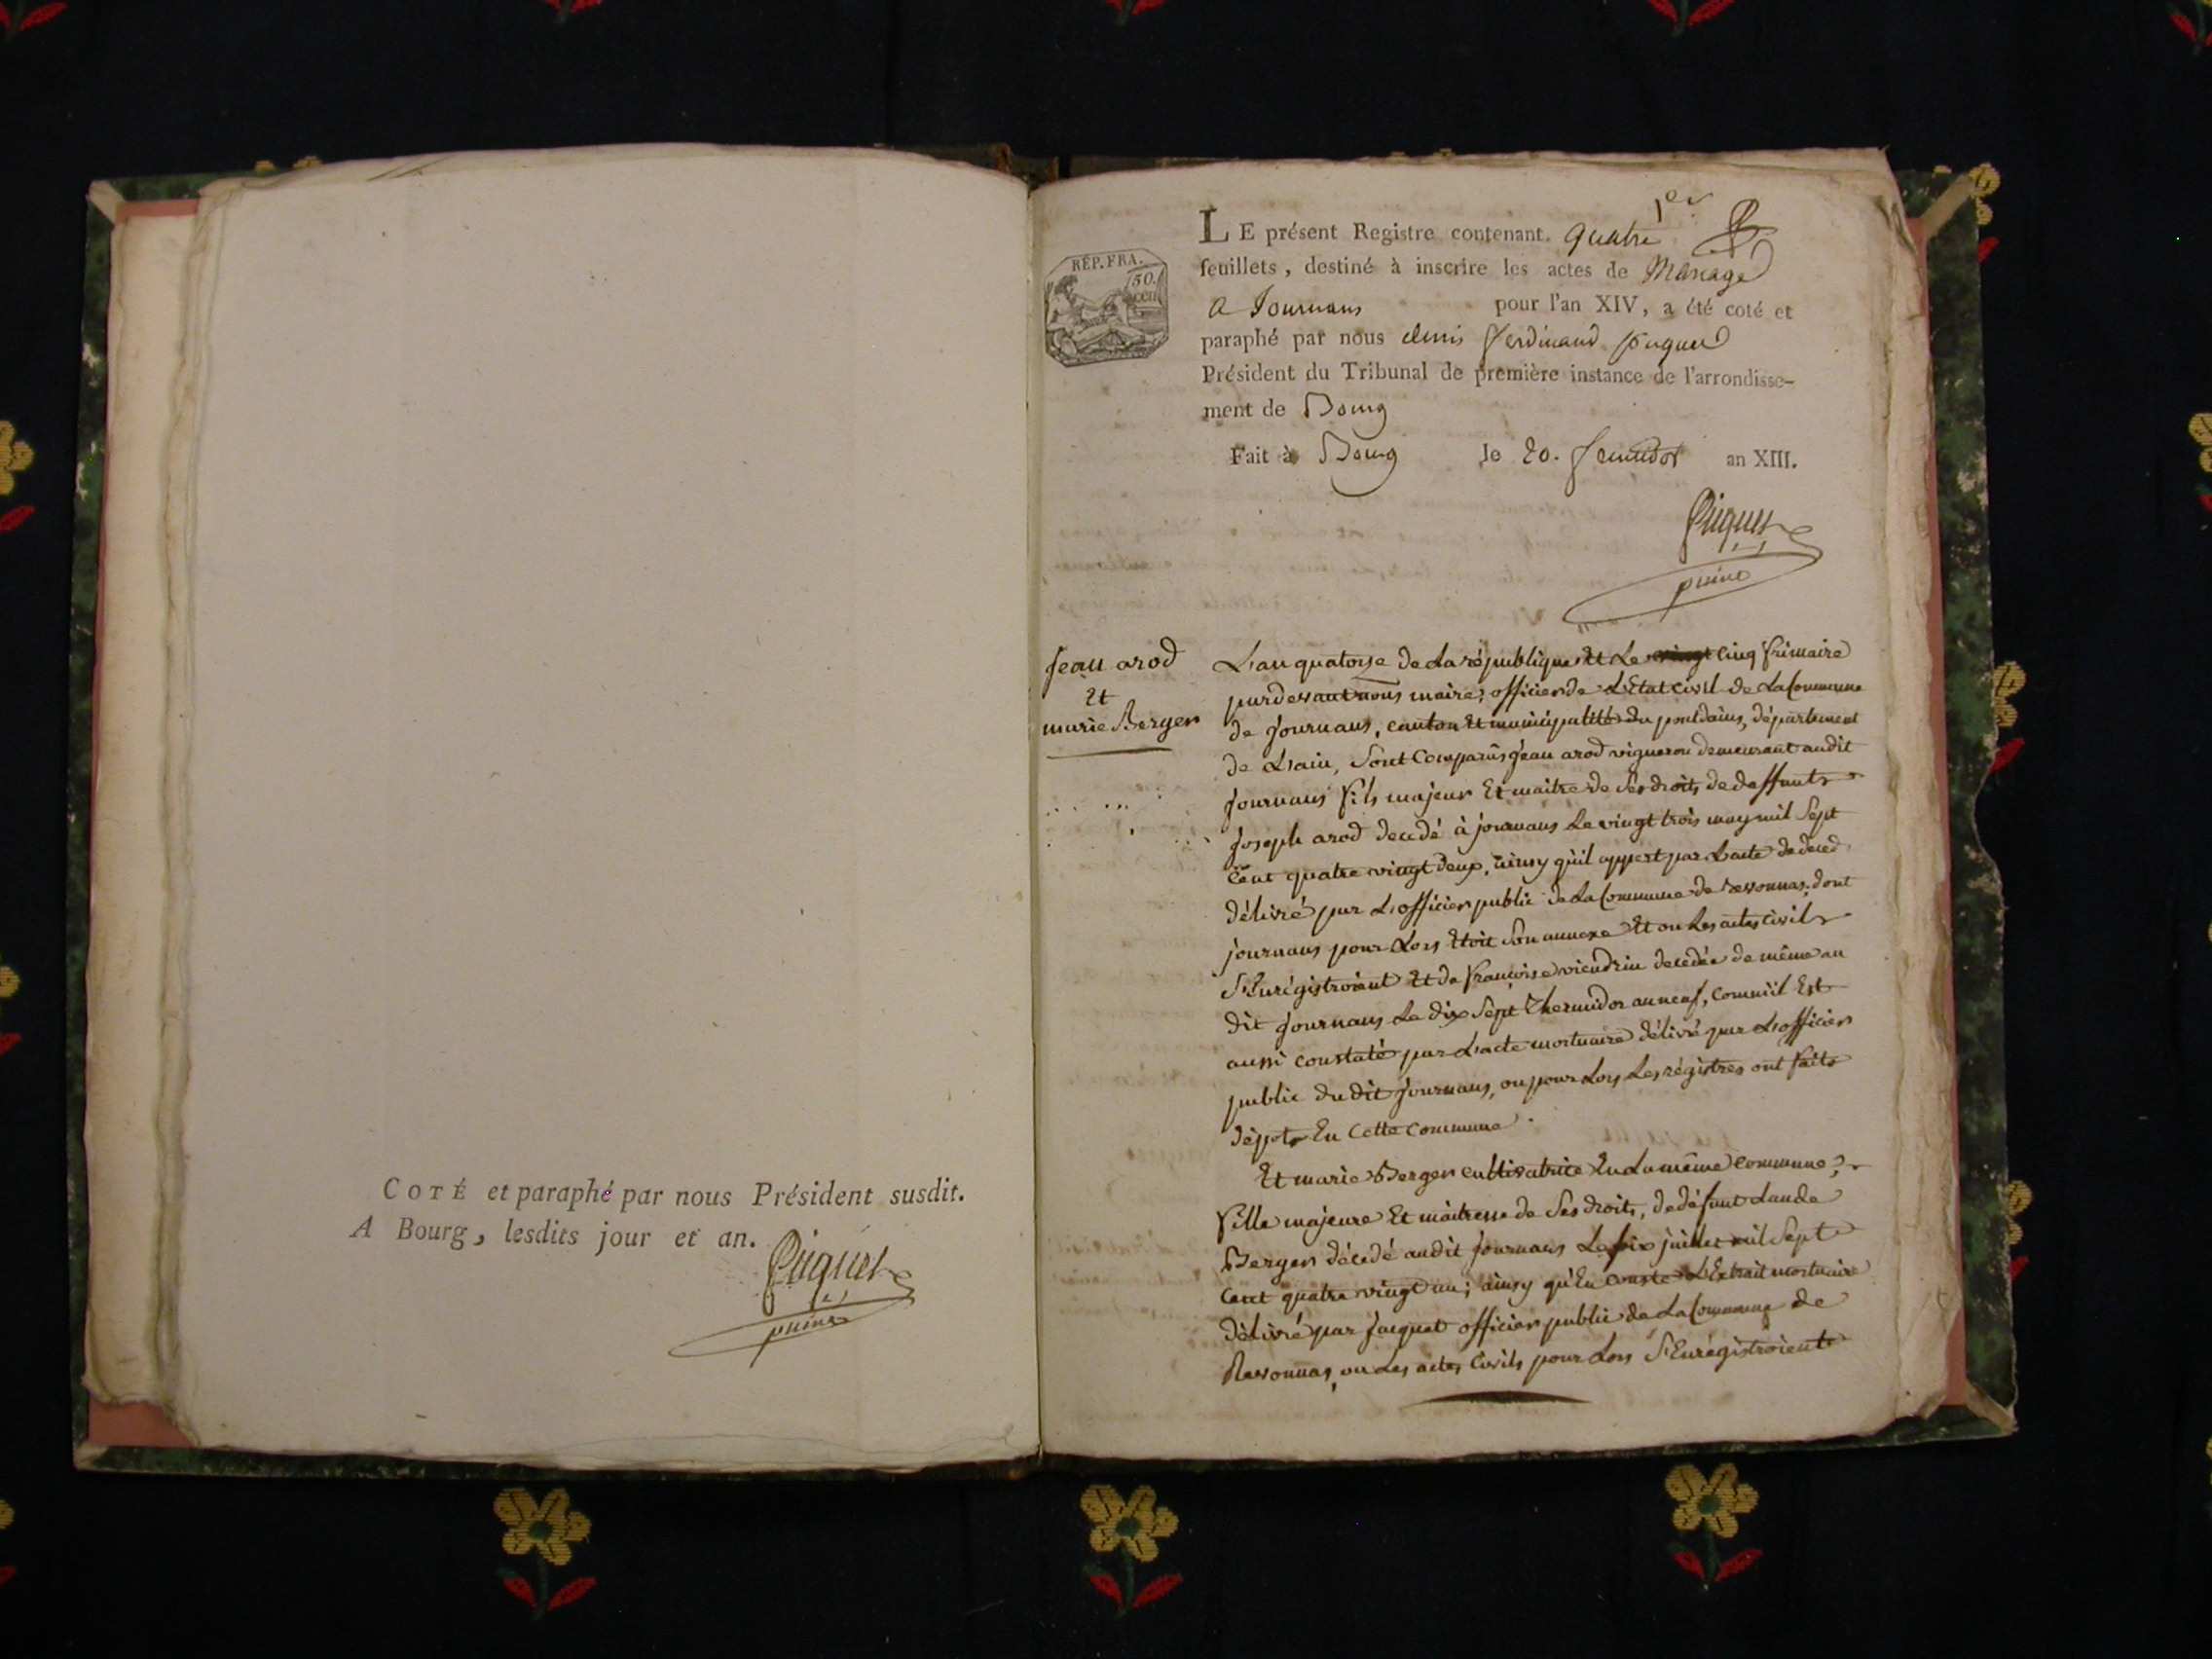 COTÉ et paraphé par nous Président susdit.
A Bourg, lesdits jour et an.
Piquet
1er
LE présent Registre contenant quatre
REP. FRA.
50.
cen
feuillets, destiné à inscrire les actes de Mariage
a Journans pour l'an XIV, a été coté et
paraphé par nous denis ferdinand piquet
Président du Tribunal de première instance de l'arrondisse-
ment de Bourg
Fait à Bourg le 20. fructidor an XIII.
Piquet
Jean arod
Et
marie Berger
L'an quatorse de La république Et Le cinq frimaire
pardevant nous maire, officier de L'Etat Civil de La Commune
de Journans, canton Et municipalité du pontdains, département
de L'ain, Sont Comparûs Jean arod vigneron demeurant audit
Journans fils majeur Et maitre de Ses droits de deffunts
Joseph arod decedé à journans Le vingt trois may mil Sept
Cent quatre vingt deux, ainsy qu'il appert par L'acte de deced
délivré par L'officier public de La Commune de revonnas, dont
journans pour Lors Etoit Son annexe Et ou Les actes Civils
S'Enrégistroient Et de françoise viendrin decedée de même au
dit Journans Le dix Sept Thermidor an neuf, comm'il Est
aussi constaté par L'acte mortuaire délivré par L'officier
public du dit Journans, ou pour Lors Les régistres ont faits
dépots En Cette Commune.
Et marie Berger cultivatrice En La même commune,
fille majeure Et maitresse de Ses droits, de défunt Claude
Berger décedé audit Journans Le six juillet mil Sept
Cent quatre vingt un; ainsy qu'En conste L'Extrait mortuaire
délivré par Jaquet officier public de La Commune de
Revonnas, ou Les actes Civils pour Lors S'Enrégistroient